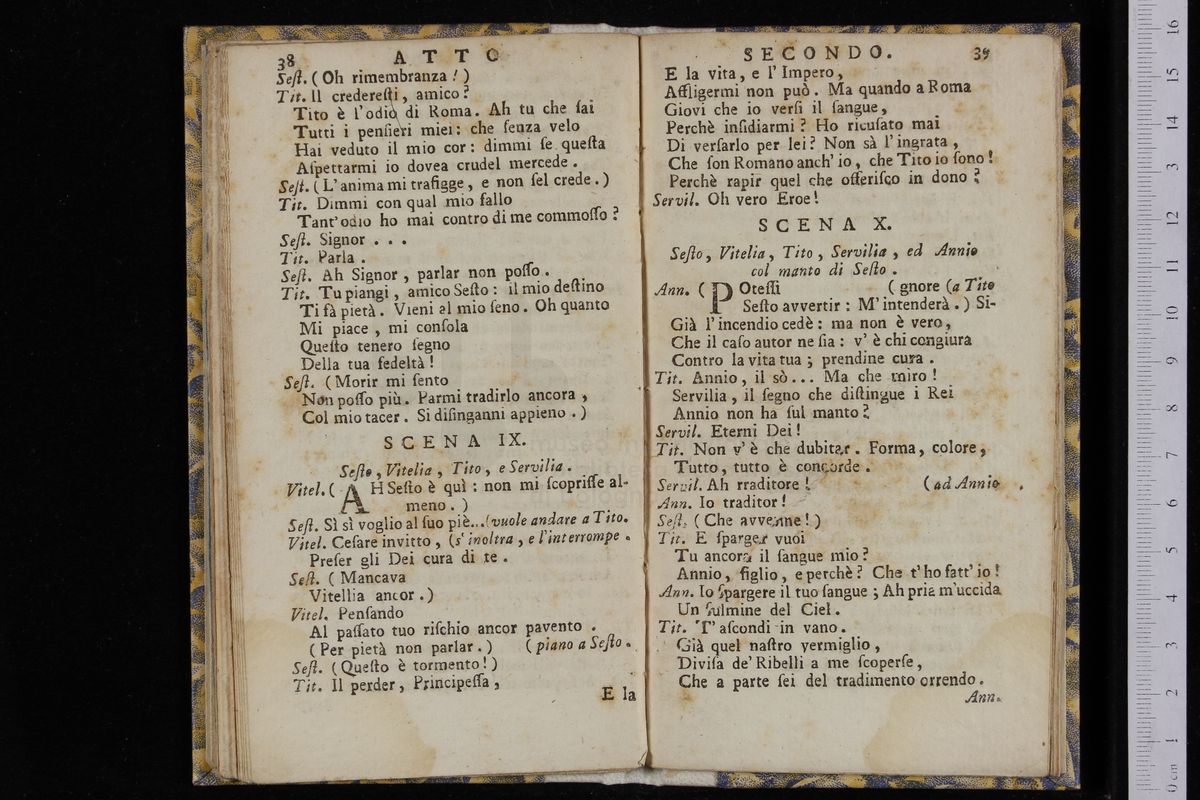 38 ATTO
Seſt. (Oh rimembranza!)
Tit. Il crederesti, amico?
Tito è l'odio di Roma. Ah tu che ſai
Tutti i penſieri miei: che ſenza velo
Hai veduto il mio cor: dimmi ſe queſta
Aſpettarmi io dovea crudel mercede.
Seſt. (L'anima mi trafigge, e non ſel crede.)
Tit. Dimmi con qual mio fallo
Tant'odio ho mai contro di me commoſſo?
Seſt. Signor...
Tit. Parla.
Seſt. Ah Signor, parlar non poſſo.
Tit. Tu piangi, amico Seſto: il mio deſtino
Ti fà pietà. Vieni al mio ſeno. Oh quanto
Mi piace, mi conſola
Queſto tenero ſegno
Della tua fedeltà!
Seſt. (Morir mi ſento
Non poſſo più. Parmi tradirlo ancora,
Col mio tacer. Si diſinganni appieno.)
SCENA IX.
Seſto, Vitelia, Tito, e Servilia.
Vitel. (AH Seſto è quì: non mi ſcopriſſe al-
meno.)
Seſt. Sì sì voglio al ſuo piè...(vuole andare a Tito.
Vitel. Ceſare invitto, (s'inoltra, e l'interrompe.
Preſer gli Dei cura di te.
Seſt. (Mancava
Vitellia ancor.)
Vitel. Penſando
Al paſſato tuo riſchio ancor pavento.
(Per pietà non parlar.) (piano a Seſto.
Seſt. (Queſto è tormento!)
Tit. Il perder, Principeſſa,
E la
SECONDO. 39
E la vita, e l'Impero,
Affligermi non può. Ma quando a Roma
Giovi che io verſi il ſangue,
Perchè inſidiarmi? Ho ricuſato mai
Di verſarlo per lei? Non sà l'ingrata,
Che ſon Romano anch'io, che Tito io ſono!
Perchè rapir quel che offeriſco in dono?
Servil. Oh vero Eroe!
SCENA X.
Seſto, Vitelia, Tito, Servilia, ed Annio
col manto di Seſto.
Ann. (POteſſi (gnore (a Tito
Seſto avvertir: M'intenderà.) Si-
Già l'incendio cedè: ma non è vero,
Che il caſo autor ne ſia: v'è chi congiura
Contro la vita tua; prendine cura.
Tit. Annio, il sò... Ma che miro!
Servilia, il ſegno che diſtingue i Rei
Annio non ha ſul manto?
Servil. Eterni Dei!
Tit. Non v'è che dubitar. Forma, colore,
Tutto, tutto è concorde.
Servil. Ah rraditore! (ad Annio
Ann. Io traditor!
Seſt. (Che avvenne!)
Tit. E ſparger vuoi
Tu ancora il ſangue mio?
Annio, figlio, e perchè? Che t'ho fatt'io!
Ann. Io ſpargere il tuo ſangue; Ah pria m'uccida
Un fulmine del Ciel.
Tit. T'aſcondi in vano.
Già quel naſtro vermiglio,
Diviſa de' Ribelli a me ſcoperſe,
Che a parte ſei del tradimento orrendo.
Ann.